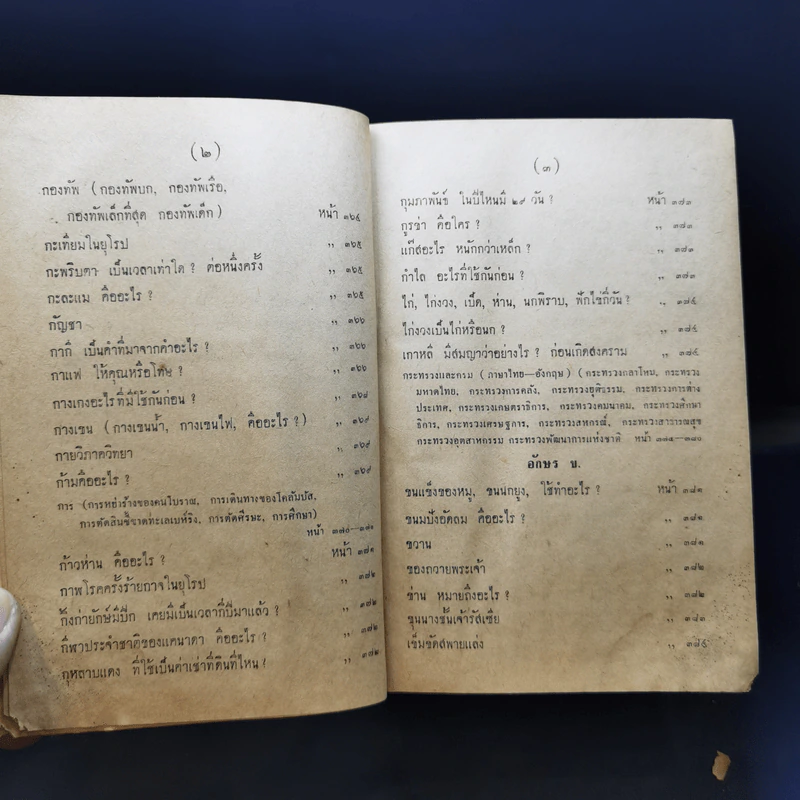 (๒)
กองทัพ (กองทัพบก, กองทัพเรือ,
กองทัพเล็กที่สุด กองทัพเด็ก) หน้า ๓๖๔
กะเทียมในยุโรป ,, ๓๖๕
กะพริบตา เป็นเวลาเท่าใด ? ต่อหนึ่งครั้ง ,, ๓๖๕
กะละแม คืออะไร ? ,, ๓๖๕
กัญชา ,, ๓๖๖
กากี เป็นคำที่มาจากคำอะไร ? ,, ๓๖๖
กาแฟ ให้คุณหรือโทษ ? ,, ๓๖๖
กางเกงอะไรที่มีใช้กันก่อน ? ,, ๓๖๘
กางเขน (กางเขนน้ำ, กางเขนไฟ, คืออะไร ?) ,, ๓๖๙
กายวิภาควิทยา ,, ๓๖๙
ก้ามคืออะไร ? ,, ๓๖๙
การ (การหย่าร้างของคนโบราณ, การเดินทางของโคลัมบัส,
การตัดสินชี้ขาดทะเลเบห์ริง, การตัดศีรษะ, การศึกษา)
หน้า ๓๗๐—๓๗๑
ก้าวห่าน คืออะไร ? หน้า ๓๗๑
กาฬโรคครั้งร้ายกาจในยุโรป ,, ๓๗๒
กิ้งก่ายักษ์มีปีก เคยมีเป็นเวลากี่ปีมาแล้ว ? ,, ๓๗๒
กีฬาประจำชาติของแคนาดา คืออะไร ? ,, ๓๗๒
กุหลาบแดง ที่ใช้เป็นค่าเช่าที่ดินที่ไหน ? ,, ๓๗๒
(๓)
กุมภาพันธ์ ในปีไหนมี ๒๙ วัน ? หน้า ๓๗๓
กูรข่า คือใคร ? ,, ๓๗๓
แก๊สอะไร หนักกว่าเหล็ก ? ,, ๓๗๓
กำไล อะไรที่ใช้กันก่อน ? ,, ๓๗๓
ไก่, ไก่งวง, เป็ด, ห่าน, นกพิราบ, ฟักไข่กี่วัน ? ,, ๓๗๔
ไก่งวงเป็นไก่หรือนก ? ,, ๓๗๔
เกาหลี มีสมญาว่าอย่างไร ? ก่อนเกิดสงคราม ,, ๓๗๔
กระทรวงและกรม (ภาษาไทย—อังกฤษ) (กระทรวงกลาโหม, กระทรวง
มหาดไทย, กระทรวงการคลัง, กระทรวงยุติธรรม, กระทรวงการต่าง
ประเทศ, กระทรวงเกษตราธิการ, กระทรวงคมนาคม, กระทรวงศึกษา
ธิการ, กระทรวงเศรษฐการ, กระทรวงสหกรณ์, กระทรวงสาธารณสุข
กระทรวงอุตสาหกรรม กระทรวงพัฒนาการแห่งชาติ หน้า ๓๗๕—๓๘๐
อักษร ข.
ขนแข็งของหมู, ขนนกยูง, ใช้ทำอะไร ? หน้า ๓๘๑
ขนมปังอัดลม คืออะไร ? ,, ๓๘๑
ขวาน ,, ๓๘๑
ของถวายพระเจ้า ,, ๓๘๒
ข่าน หมายถึงอะไร ? ,, ๓๘๒
ขุนนางชั้นเจ้ารัสเซีย ,, ๓๘๓
เข็มขัดสพายแล่ง ,, ๓๘๔